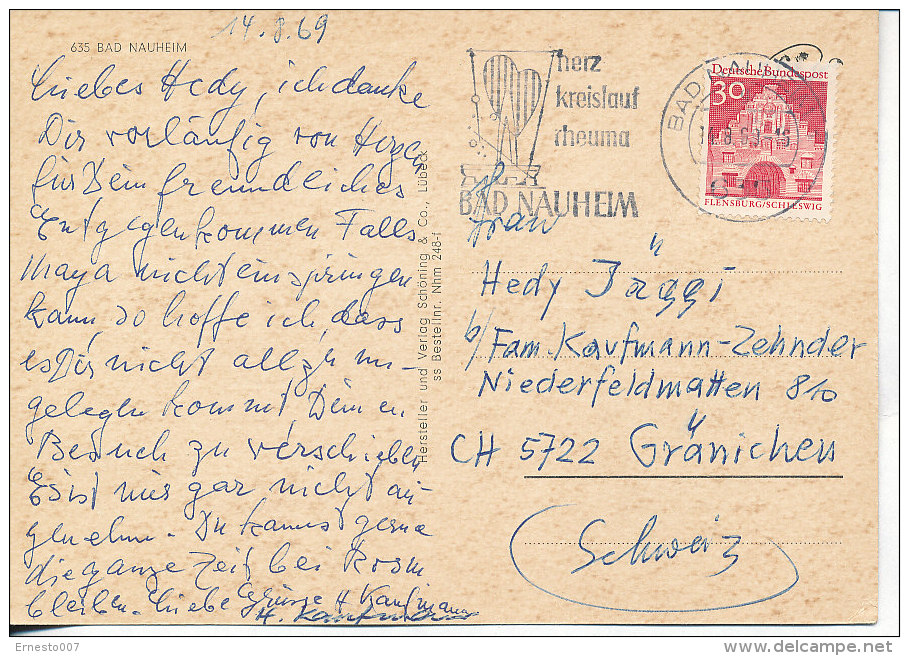 14.8.69
635 BAD NAUHEIM
Liebes Hedy, ich danke
Dir vorläufig von Herzen
für Dein freundliches
Entgegenkommen Falls
Maya nicht einspringen
kann, so hoffe ich, dass
es Dir nicht allzu un-
gelegen kommt, Deinen
Besuch zu verschieben
Es ist mir gar nicht an-
genehm. Du kannst gerne
die ganze Zeit bei
bleiben. Liebe Grüsse H Kaufmann
H. Kaufmann
Hersteller und Verlag Schöning & Co., Lübeck
ss Bestellnr. Nhm 248-f
herz
kreislauf
rheuma
BAD NAUHEIM
BAD NAUHEIM
Deutsche Bundespost
30
FLENSBURG/SCHLESWIG
Frau
Hedy Jäggi
b/ Fam. Kaufmann-Zehnder
Niederfeldmatten 810
CH 5722 Gränichen
Schweiz
Ernesto007
www.delcampe.net